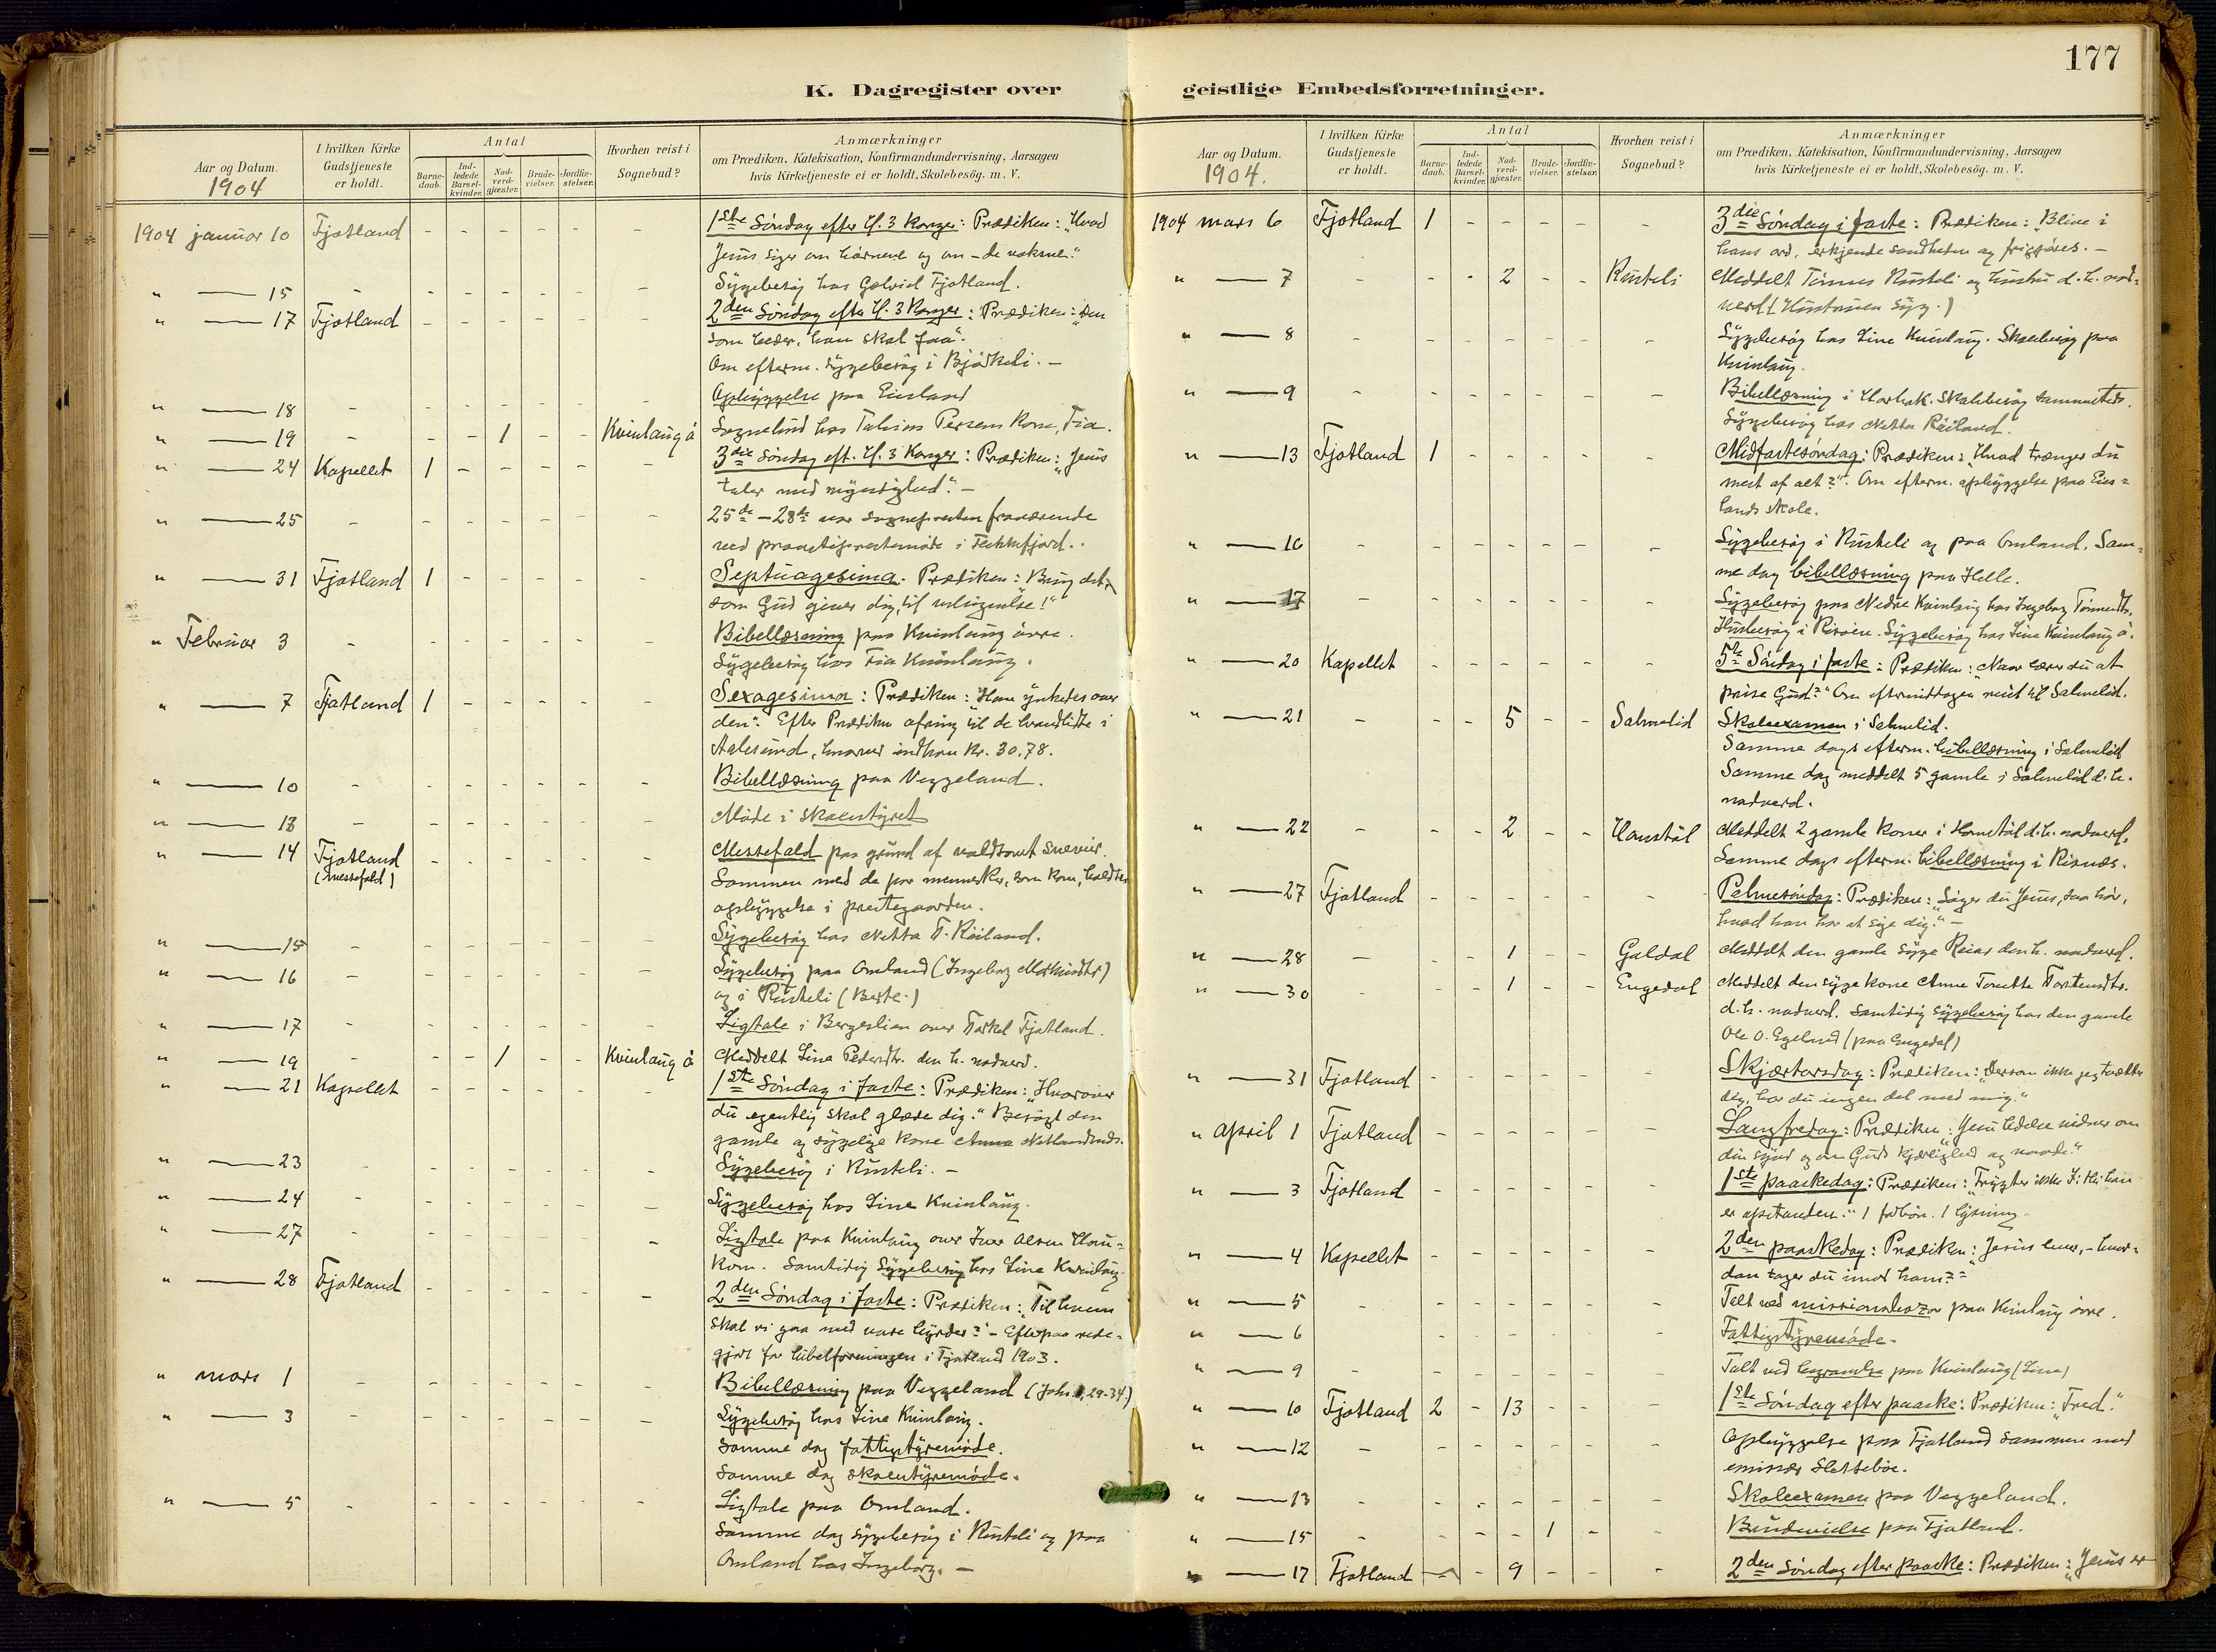 177
K. Dagregister over
geistlige Embedsforretninger.
Aar og Datum.
1904
I hvilken Kirke Gudstjeneste er holdt.
Antal
Barne-daab.
Ind-ledede Barsel-kvinder.
Nad-verd-gjæster.
Brude-vielser.
Jordfæ-stelser.
Hvorhen reist i Sognebud?
Anmærkninger
om Prædiken, Katekisation, Konfirmandundervisning, Aarsagen
hvis Kirketjeneste ei er holdt, Skolebesög. m. V.
1904 januar 10 Fjotland - - - - - - 1ste Søndag efter H. 3 Konger: Prædiken: "Hvad
Jesus siger om børnene og om - de voksne."
" — 15 - - - - - - - Sygebesøg hos Fjotland.
" — 17 Fjotland - - - - - - 2den Søndag efter H. 3 Konger: Prædiken: "Den
som beder, han skal faa".
Om efterm. sygebesøg i Bjørkeli. -
" — 18 - - - - - - - Opbyggelse paa Eiesland
" — 19 - - - 1 - - Kvinlaug ø Sognebud hos Tobias Persens kone, Fia.
" — 24 Kapellet 1 - - - - - 3die Søndag eft. H. 3 Konger: Prædiken: "Jesus
taler med myndighed". -
" — 25 - - - - - - - 25de - 28de var sognepresten fraværende
ved i Flekkefjord.
" — 31 Fjotland 1 - - - - - Septuagesima. Prædiken: Brug det,
som Gud giver dig, til velsignelse!"
" Februar 3 - - Bibellæsning paa Kvinlaug øvre.
Sygebesøg hos Fia Kvinlaug.
" — 7 Fjotland 1 - - - - - Sexagesima: Prædiken: "Han ynkedes over
den". Efter Prædiken ofring til de brandlidte i
Aalesund, hvorved indkom kr. 30,78.
" — 10 - - - - - - - Bibellæsning paa Veggeland.
" — 13 - - - - - - - Møde i skolestyret
" — 14 Fjotland - - - - - - Messefald paa grund af voldsomt sneveir.
(messefald) Sammen med de par mennesker, som kom, holdtes
opbyggelse i prestegaarden.
" — 15 - - - - - - - Sygebesøg hos Netta T. Røiland.
" — 16 - - - - - - - Sygebesøg paa Omland (Ingeborg)
og i Rusteli (Berte.)
" — 17 - - - - - - - Ligtale i Bergeslien over Torkel Fjotland.
" — 19 - - - 1 - - Kvinlaug ø Meddelt Sina Pedersdtr. den h. nadverd.
" — 21 Kapellet - - - - - - 1ste Søndag i faste: Prædiken: "Hvorover
du egentlig skal glæde dig." Besøgt den
gamle og sygelige kone Anna
" — 23 - - - - - - - Sygebesøg i Rusteli. -
" — 24 - - - - - - - Sygebesøg hos Sine Kvinlaug.
" — 27 - - - - - - - Ligtale paa Kvinlaug over Iver Olsen Hau-
kom. Samtidig Sygebesøg hos Sine Kvinlaug.
" — 28 Fjotland - - - - - - 2den Søndag i faste: Prædiken: "Til hvem
skal vi gaa med vore byrder?" - Efterpaa rede-
gjort for bibelforeningen i Fjotland 1903.
" mars 1 - - - - - - - Bibellæsning paa Veggeland (Joh. 1, 29-34.)
" — 3 - - - - - - - Sygebesøg hos Sine Kvinlaug.
Samme dag fattigstyremøde.
Samme dag skolestyremøde.
" — 5 - - - - - - - Ligtale paa Omland.
Samme dag sygebesøg i Rusteli og paa
Omland hos Ingeborg. -
Aar og Datum.
1904.
I hvilken Kirke Gudstjeneste er holdt.
Antal
Barne-daab.
Ind-ledede Barsel-kvinder.
Nad-verd-gjæster.
Brude-vielser.
Jordfæ-stelser.
Hvorhen reist i Sognebud?
Anmærkninger
om Prædiken, Katekisation, Konfirmandundervisning, Aarsagen
hvis Kirketjeneste ei er holdt, Skolebesög. m. V.
1904 mars 6 Fjotland 1 - - - - - 3die Søndag i faste: Prædiken: "Blive i
hans ord, erkjende sandheden og frigjøres. -
" — 7 - - - 2 - - Rusteli Meddelt Tønnes Rusteli og hustru d. h. nad-
verd (Hustruen syg.)
" — 8 - - - - - - - Sygebesøg hos Sine Kvinlaug. Skolebesøg paa
Kvinlaug.
" — 9 - - - - - - - Bibellæsning i Skolebesøg sammesteds.
Sygebesøg hos Netta Røiland.
" — 13 Fjotland 1 - - - - - Midfastesøndag: Prædiken: "Hvad trænger du
mest af alt?". Om efterm. opbyggelse paa Eies-
lands skole.
" — 16 - - - - - - - Sygebesøg i Rusteli og paa Omland. Sam-
me dag bibellæsning paa Helle.
" — 17 - - - - - - - Sygebesøg paa Nedre Kvinlaug hos Ingeborg
Husbesøg i Sygebesøg hos Sine Kvinlaug ø.
" — 20 Kapellet - - - - - - 5te Søndag i faste: Prædiken: "Naar lærer du at
prise Gud?" Om eftermiddagen reist til Salmelid.
" — 21 - - - 5 - - Salmelid Skoleexamen i Salmelid.
Samme dags efterm. bibellæsning i Salmelid
Samme dag meddelt 5 gamle i Salmelid d. h.
nadverd.
" — 22 - - - 2 - - Homstøl Meddelt 2 gamle koner i Homstøl d. h. nadverd.
Samme dags efterm. bibellæsning i Risnes.
" — 27 Fjotland - - - - - - Palmesøndag: Prædiken: "Søger du Jesus, saa hør,
hvad han har at sige dig." -
" — 28 - - - 1 - - Galdal Meddelt den gamle syge Reiar den h. nadverd.
" — 30 - - - 1 - - Engedal Meddelt den syge kone Anne Tomette Torstensdtr.
d. h. nadverd. Samtidig sygebesøg hos den gamle
Ole O. Egeland (paa Engedal)
" — 31 Fjotland - - - - - - Skjærtorsdag: Prædiken: "Dersom ikke jeg tvætter
dig, har du ingen del med mig."
" april 1 Fjotland - - - - - - Langfredag: Prædiken: "Jesu lidelse vidner om
din synd og om Guds kjærlighed og naade."
" — 3 Fjotland - - - - - - 1ste paaskedag: Prædiken: "Frygter ikke I! thi han
er opstanden." 1 forbøn. 1 lysning.
" — 4 Kapellet - - - - - - 2den paaskedag: Prædiken: "Jesus lever, - hvor-
dan tager du imod ham?"
" — 5 - - - - - - - Talt ved missionsbazar paa Kvinlaug øvre.
" — 6 - - - - - - Fattigstyremøde.
" — 9 - - - - - - - Talt ved begravelse paa Kvinlaug (Sine)
" — 10 Fjotland 2 - 13 - - - 1ste Søndag efter paaske: Prædiken: "Fred."
" — 12 - - - - - - - Opbyggelse paa Fjotland sammen med
emissær Slettebøe.
" — 13 - - - - - - - Skoleexamen paa Veggeland.
" — 15 - - - - 1 - - Brudevielse paa Fjotland.
" — 17 Fjotland - - 9 - - - 2den Søndag efter Paaske: Prædiken: "Jesus er